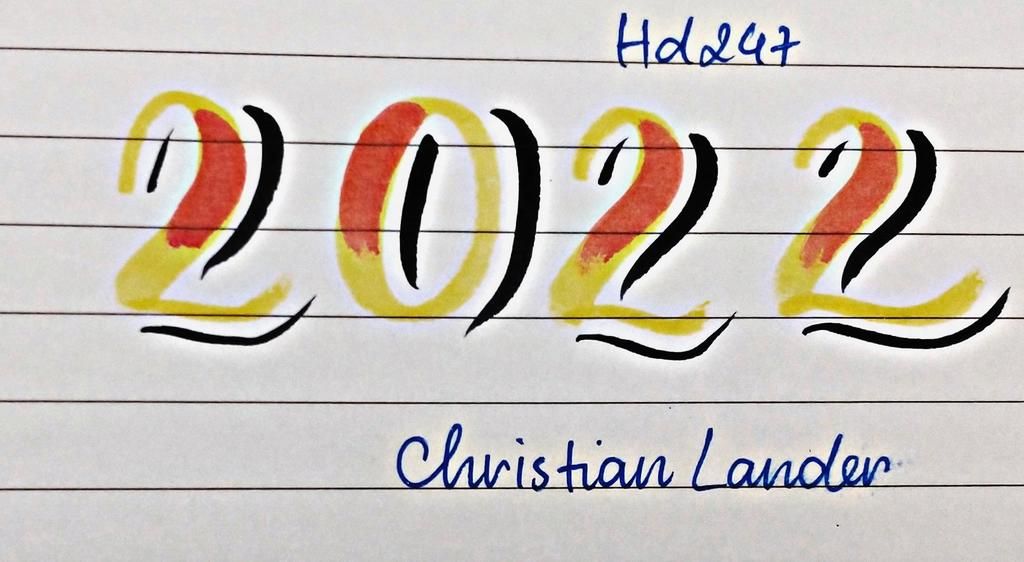 Hd247
2022
Christian Lander